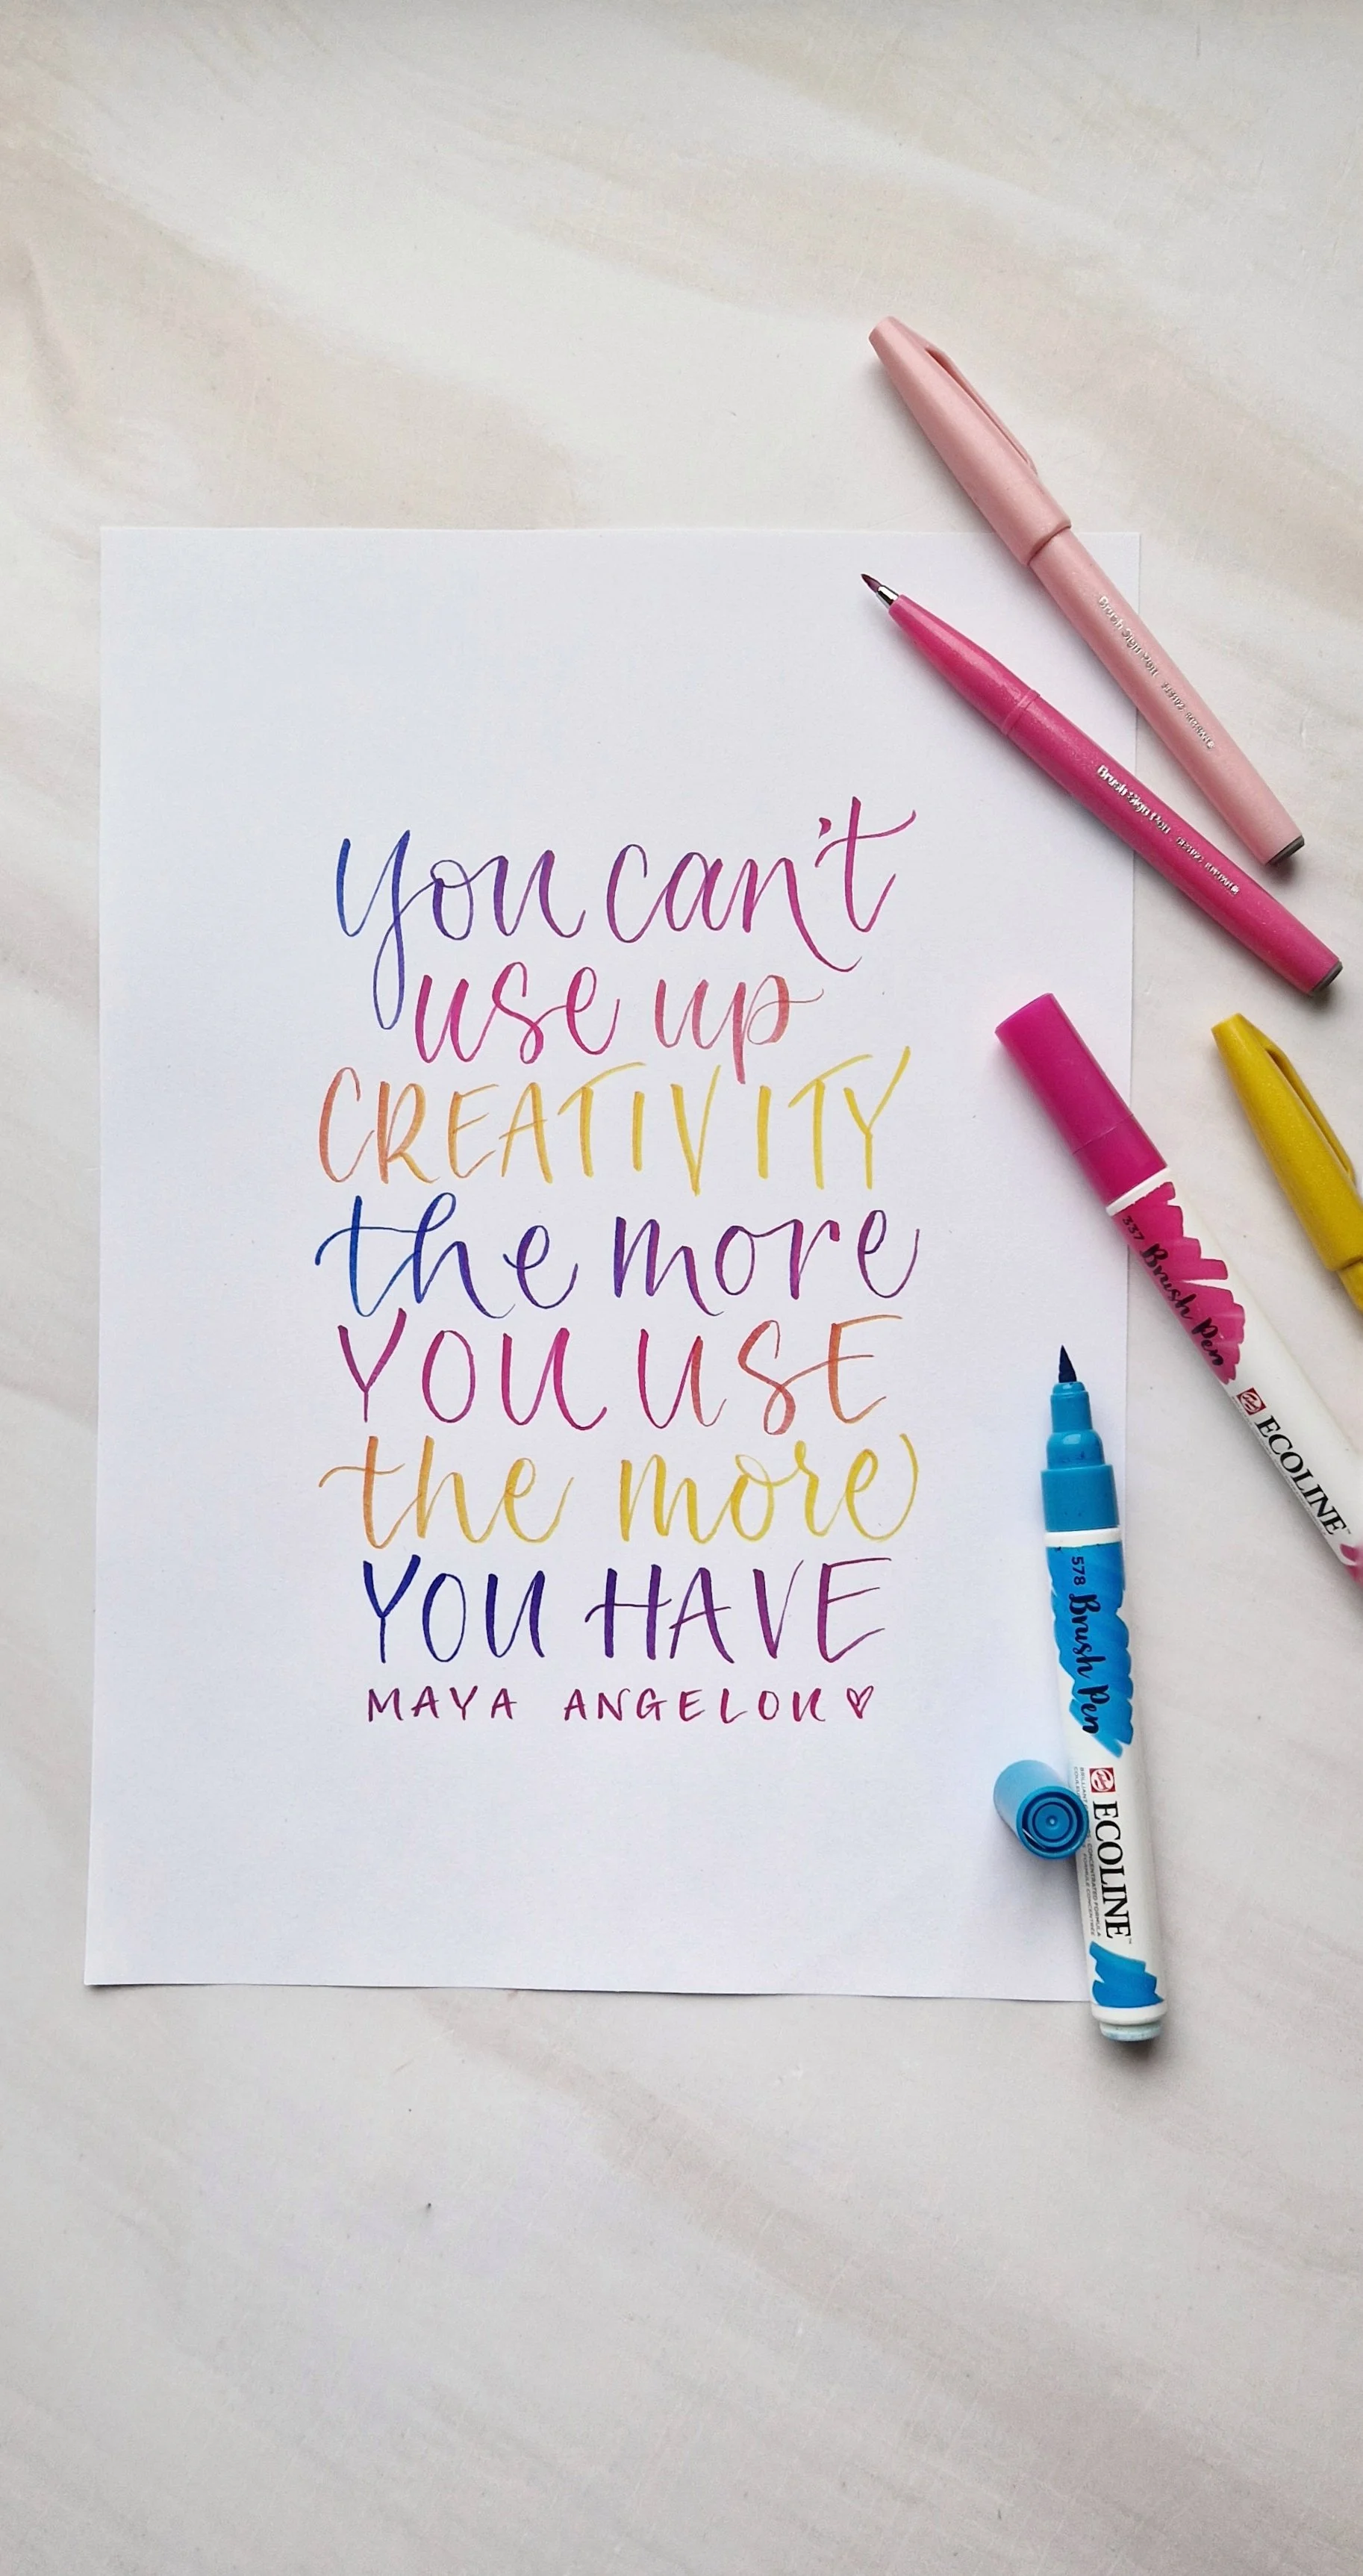 you can't
use up
CREATIVITY
the more
YOU USE
the more
YOU HAVE
MAYA ANGELOU♡
Brush Sign Pen
Brush Sign Pen
337 Brush Pen
ECOLINE
578 Brush Pen
ECOLINE